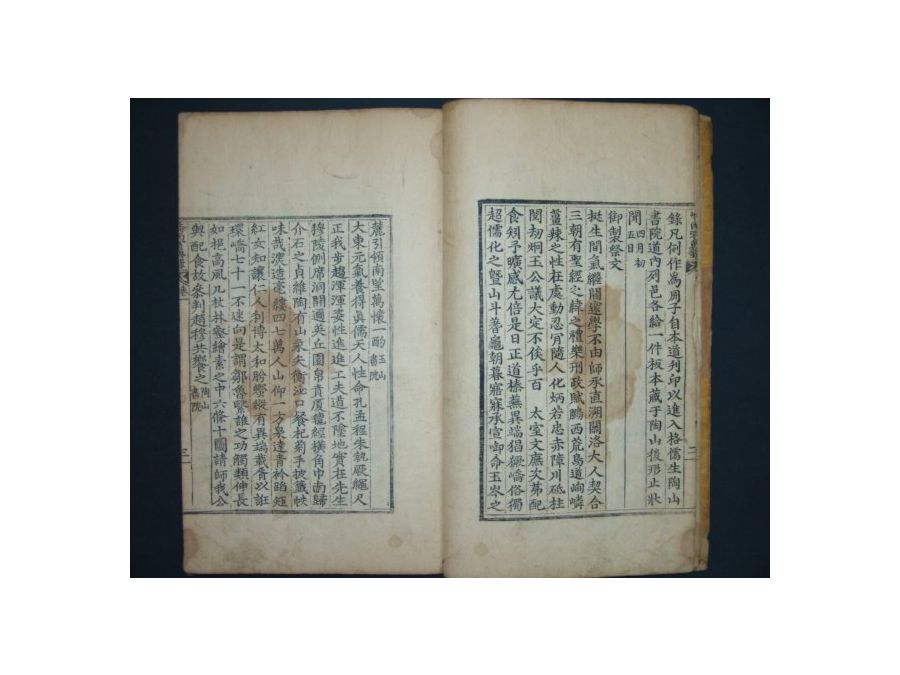 錄凡例作爲周子自本道刋印以進入格儒生陶山
書院道內列邑各給一件板本藏于陶山後 止狀
聞四月初五日
御製祭文
挺生間氣繼開邃學不由師承直溯關洛大人契合
三朝有聖經之緯之禮樂刑政賦鵬西荒鳥道峋嶙
薑辣之性柱處動忍宜隨人化炳若忠赤障川砥柱
閱劫炯玉公議大定不俟乎百 太室文廡次苐配
食矧予曠感尤倍是日正道榛蕪異端猖獗嶠俗獨
超儒化之曁山斗蓍龜朝暮寤寐承宣啣命玉岑之
麓引領南望萬懷一酌玉山書院
大東元氣養得眞儒天人性命孔孟程朱執厥繩尺
正我步趨渾渾姿性進進工夫道不墜地實在先生
穆陵側席洞開 英丘園帛賁厦氊經橫角巾南歸
介石之貞維陶有山衆矢衡泌口餐杞菊手披籤帙
味哉濃造毫縷四七萬人山仰一方臬達青衿蹈矩
紅女知讓仁人利博太和肹蠁縱有異端戴胥以誑
環嶠七十一不迷向是謂鄒魯繄誰之功觸類伸長
如挹高風几杖林壑繪素之中六條十圖請師我公
與配食故叅判趙穆共饗之陶山書院
三
三